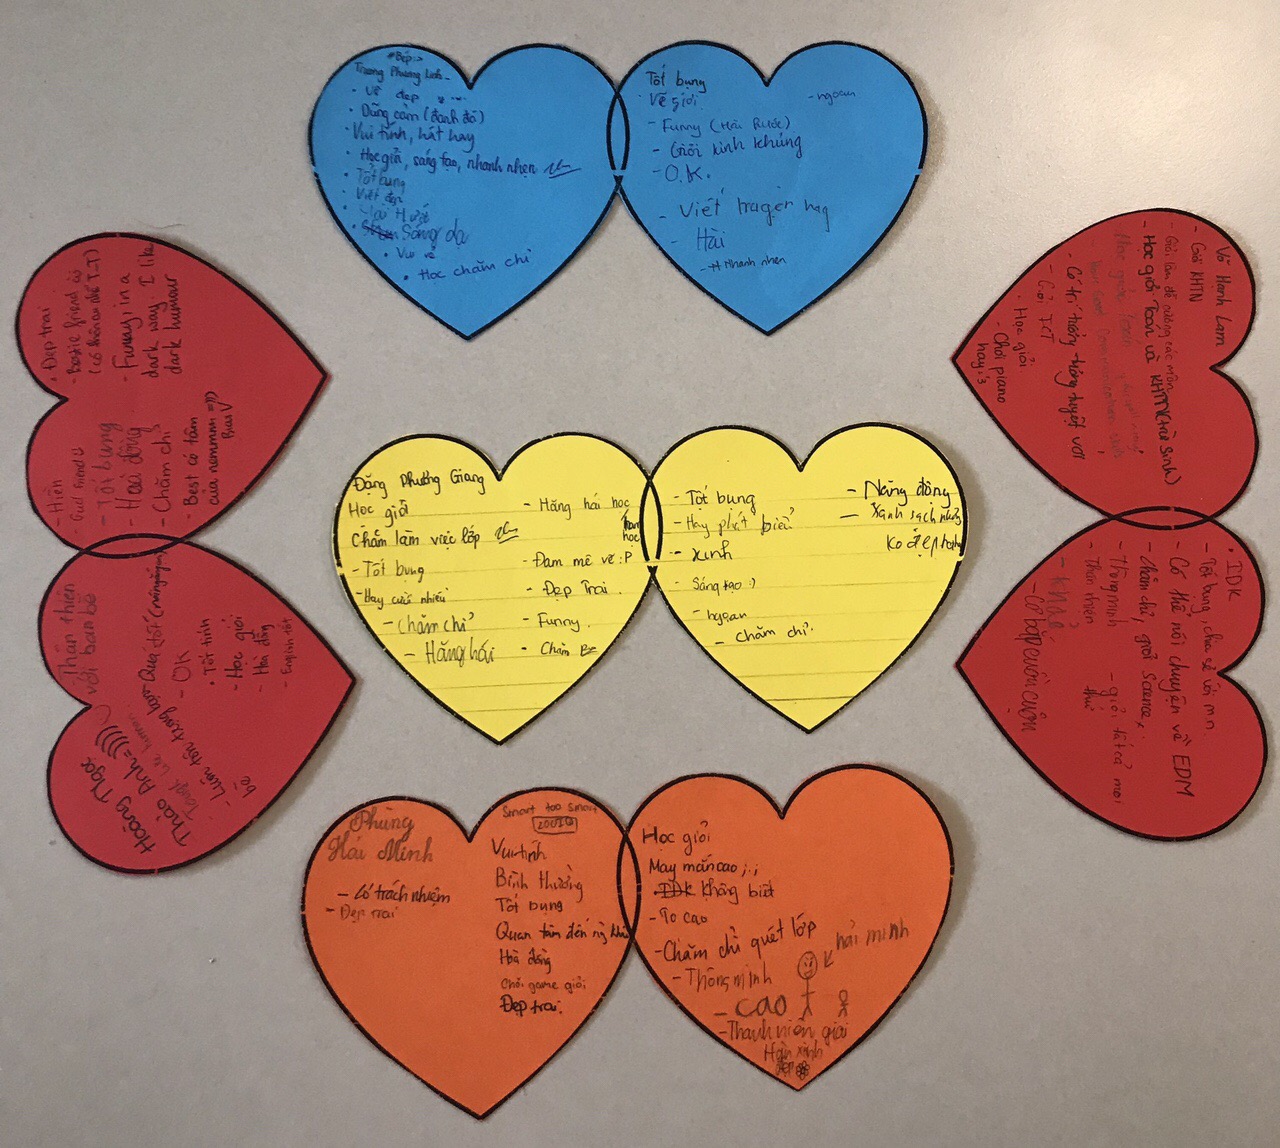 #Bếp:>
Trương Phương Linh
• Vẽ đẹp
• Dũng cảm (đanh đá)
• Vui tính, hát hay
• Học giỏi, sáng tạo, nhanh nhẹn
• Tốt bụng
• Viết đẹp
• Hài Hước
• Sáng dạ
• Vui vẻ
• Học chăm chỉ
Tốt bụng
Vẽ giỏi
- ngoan
- Funny (Hài Hước)
- Giỏi kinh khủng
- O.K.
- Viết hay
- Hài
- Nhanh nhẹn
• Đẹp trai
- Bestie friend
- Funny in a
dark way. I like
dark humour
- Hiền
- Tốt bụng
- Hoà đồng
- Chăm chỉ
- Best có tâm
của nemmmm =)))
Thân thiện
với bạn bè
Hoàng Ngọc
Thảo Anh =))))
- Luôn tôn trọng bạn
bè
- Quá tốt
- OK
• Tốt tính
- Học giỏi
- Hoà đồng
- English tốt
Đặng Phương Giang
Học giỏi
Chăm làm việc lớp
- Tốt bụng
- Hay cười nhiều
- Chăm chỉ
- Hăng hái
- Hăng hái học
- Đam mê vẽ :P
- Đẹp Trai.
- Funny.
• Chăm
- Tốt bụng
- Hay phát biểu
- Xinh
- Sáng tạo :)
- ngoan
- Chăm chỉ.
- Năng động
- Xanh sạch nhưng
ko đẹp
Võ Hạnh Lam
- Giỏi KHTN
- Giỏi lắm đề cương các môn
- Học giỏi Toán và KHTN
- Có trí tưởng tượng tuyệt vời
- Giỏi ICT
• Học giỏi
- Chơi piano
hay :3
• IDK
- Tốt bụng, chia sẻ với mn
- Có thể nói chuyện về EDM
- Chăm chỉ, giỏi Science,
- Thông minh
- giỏi tất cả mọi
thứ
- Thân thiện
- Khoẻ
- Cơ bắp cuồn cuộn
Phùng
Hải Minh
- Có trách nhiệm
- Đẹp trai
Smart too smart
200IQ
Vui tính
Bình thường
Tốt bụng
Quan tâm đến ng khác
Hoà đồng
Chơi game giỏi
Đẹp trai.
Học giỏi
May mắn cao ;.;
• IDK Không biết
- To cao
- Chăm chỉ quét lớp
hải minh
- Thông minh
- cao
- Thanh niên giỏi